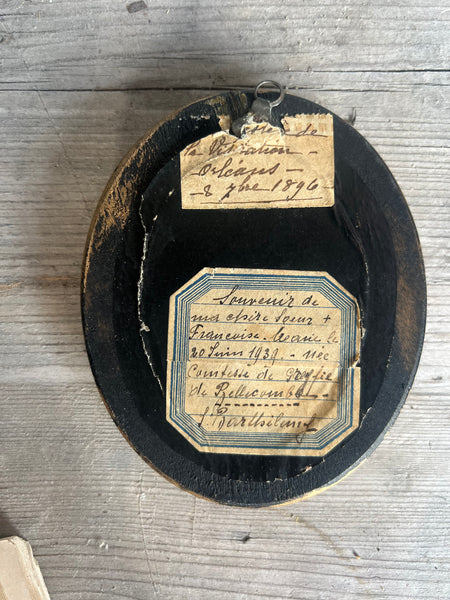 de
la Visitation -
Orléans -
- 8 7bre 1896 -
Souvenir de
ma chère Sœur +
Françoise. Marie le
20 Juin 1939. - née
Comtesse de
de Bellecombe -
S. Barthélemy